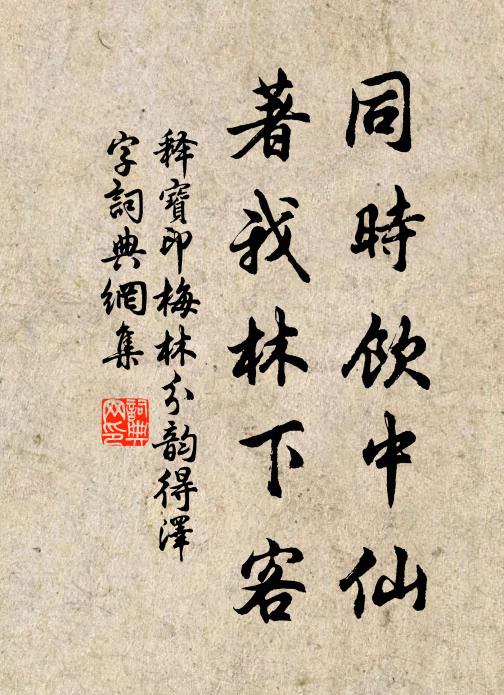 同時飲中仙
著我林下客
釋寶印梅林分韵得澤
字詞典網集
詞典网印